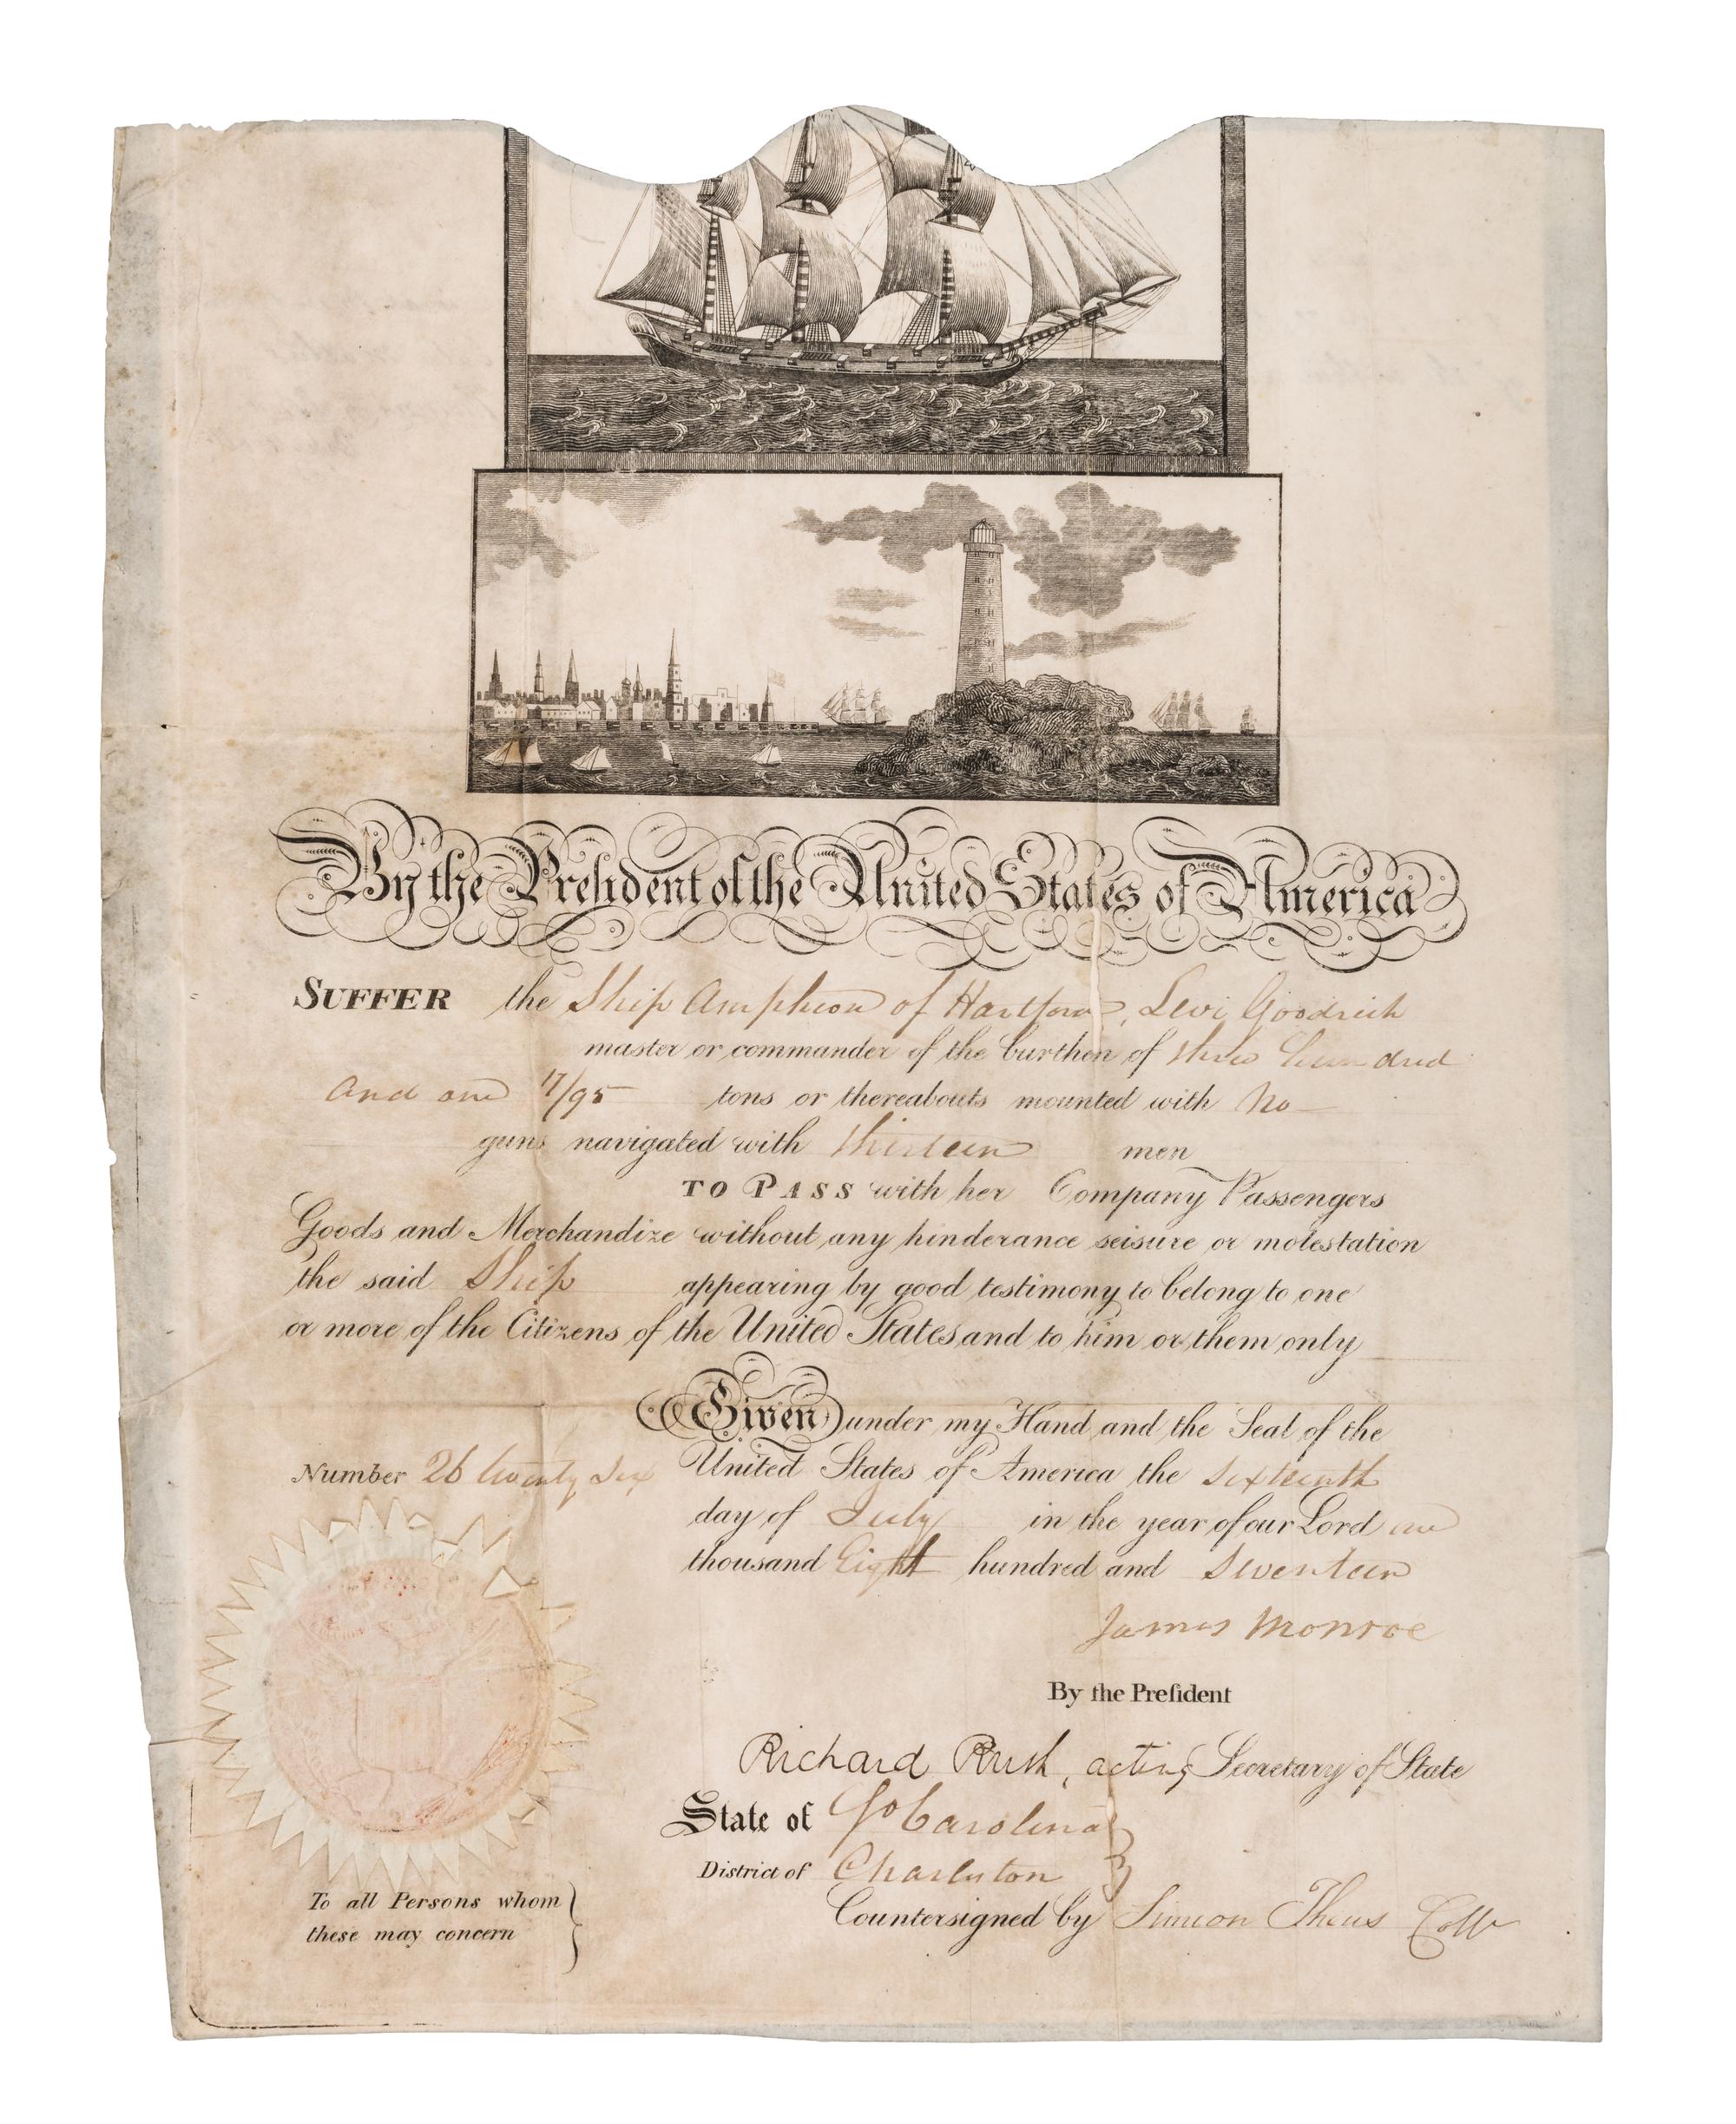 By the Preſident of the United States of America
SUFFER the Ship Amphion of Hartford, Levi Goodrich
master or commander of the burthen of three hundred
and one 17/95 tons or thereabouts mounted with no
guns navigated with thirteen men
TO PASS with her Company Passengers
Goods and Merchandize without any hinderance seisure or molestation
the said Ship appearing by good testimony to belong to one
or more of the Citizens of the United States and to him or them only
Given under my Hand and the Seal of the
Number 26 twenty Six United States of America the Sixteenth
day of July in the year of our Lord one
thousand Eight hundred and Seventeen
James Monroe
By the Preſident
Richard Rush, acting Secretary of State
State of So Carolina
District of Charleston
Countersigned by Simeon Theus Collr
To all Persons whom
these may concern